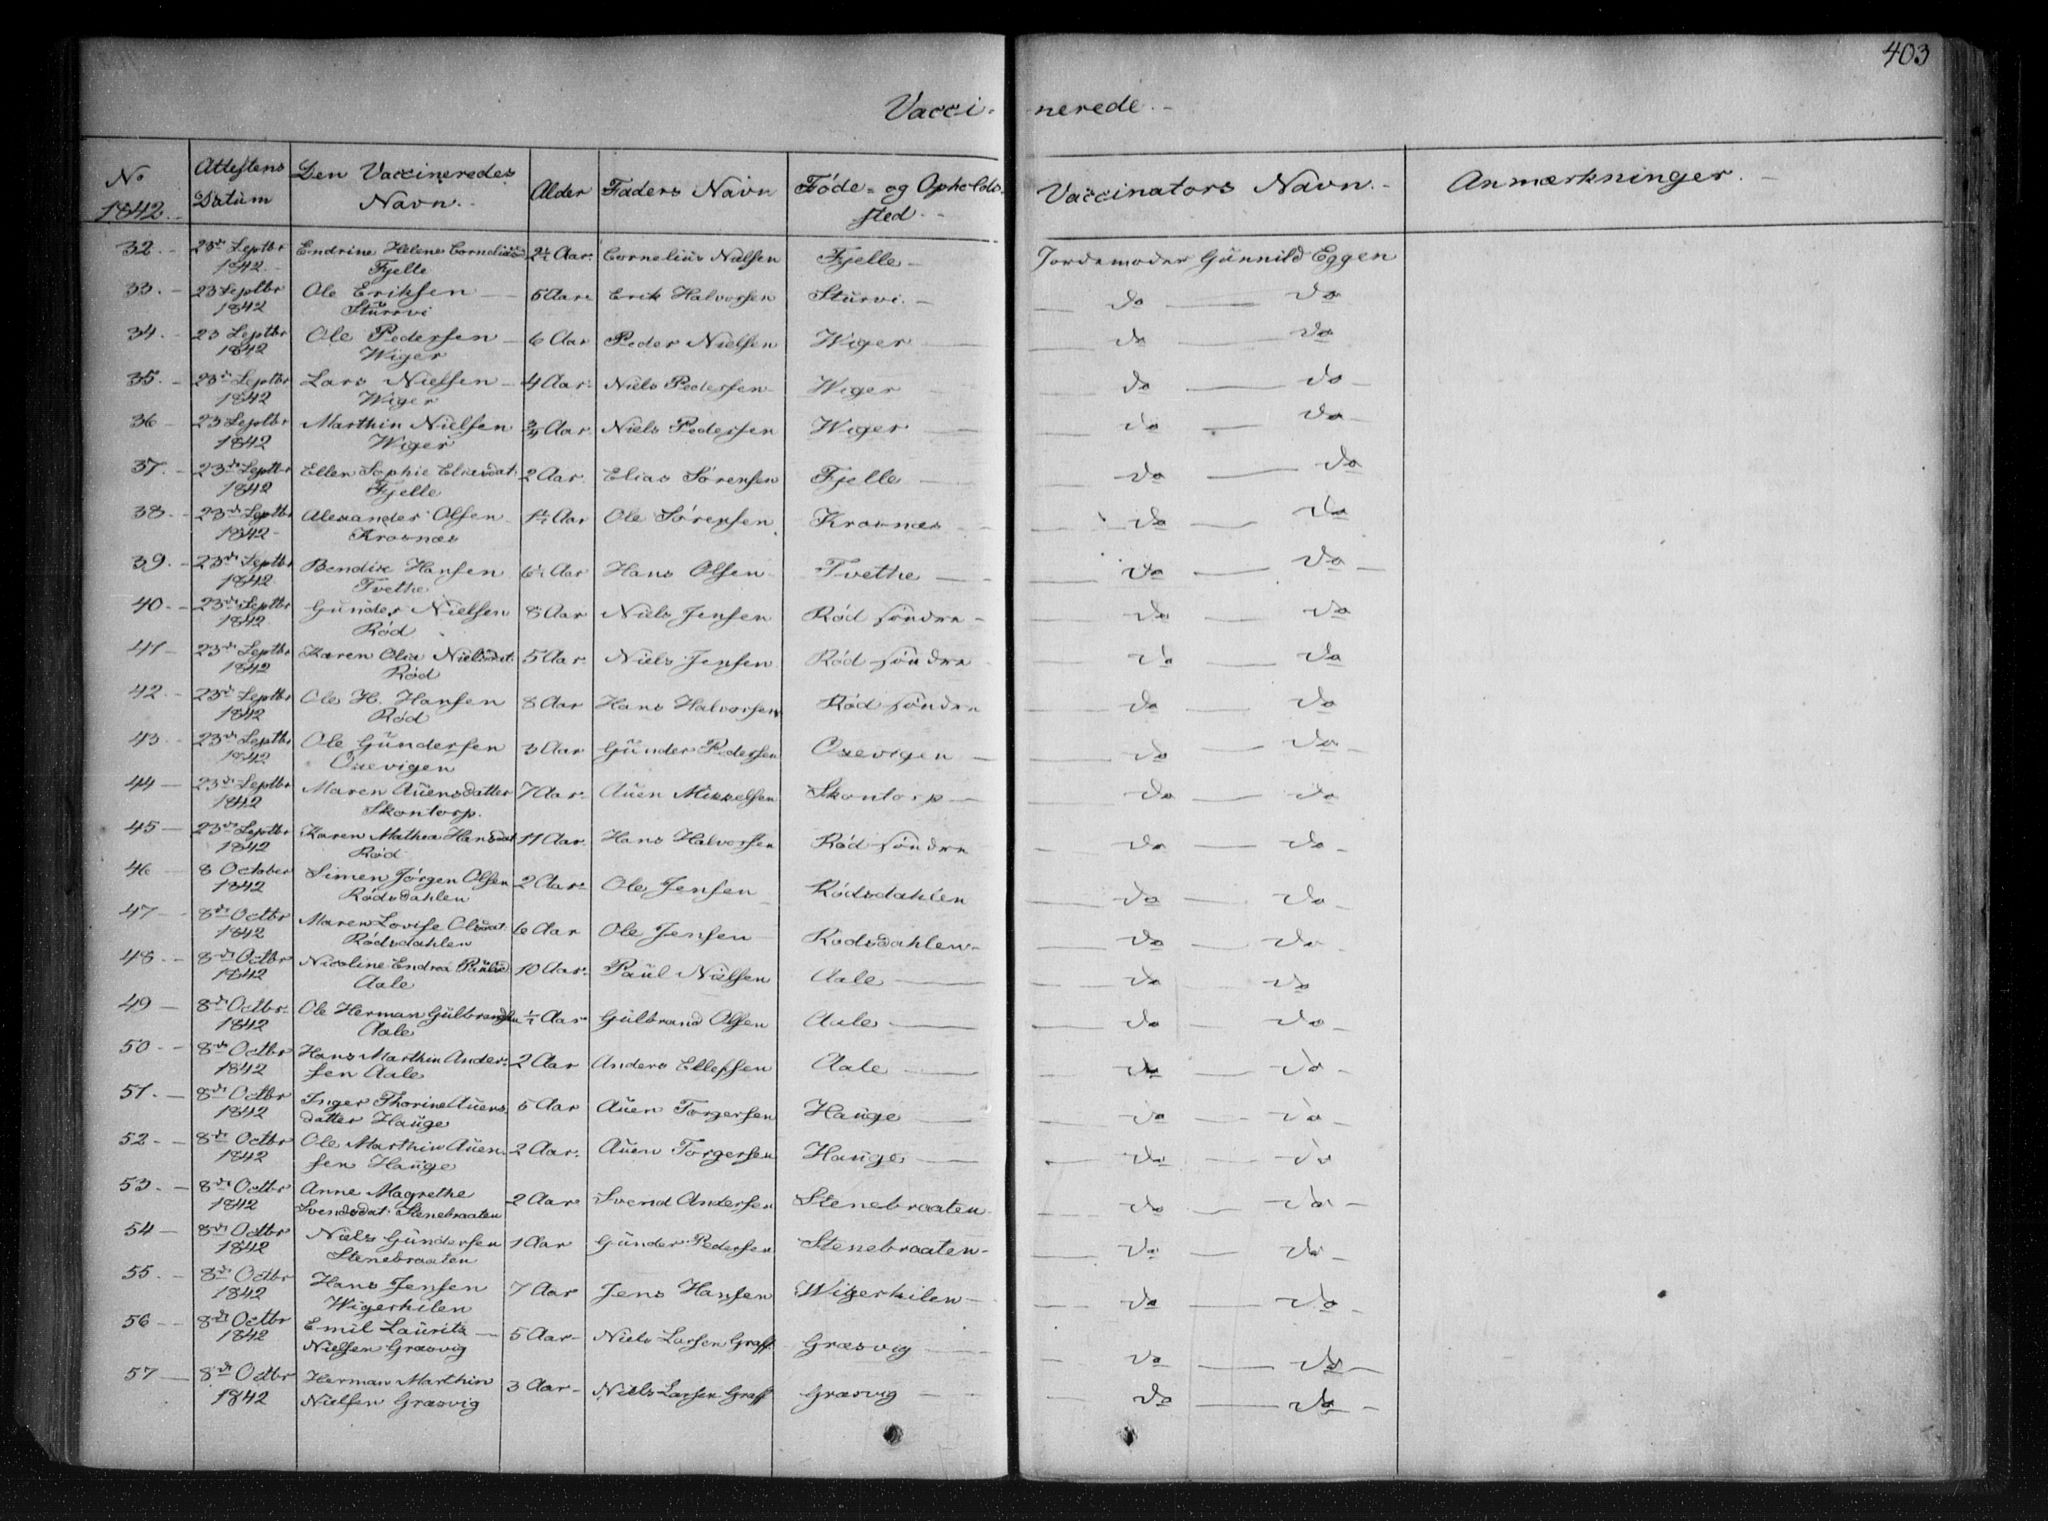 403
Vacci- nerede.
No 1842. Attestens Datum Den Vaccineredes Navn. Alder Faders Navn Føde- og Opholdssted. Vaccinators Navn. Anmærkninger.
32. 23de Septbr Endrine Helene Cornelius 2½ Aar. Cornelius Nielsen Fjelle Jordemoder Gunnild Eggen
1842. Fjelle
33. 23 Septbr Ole Eriksen 5 Aar Erik Halvorsen Sturvi. do do
1842 Sturrvi
34. 23 Septbr Ole Pedersen 6 Aar Peder Nielsen Wiger do do
1842 Wiger
35. 23de Septbr Lars Nielsen 4 Aar. Niels Pedersen Wiger do do
1842 Wiger
36 23 Septbr Marthin Nielsen ¾ Aar. Niels Pedersen Wiger do do
1842 Wiger
37. 23de Septbr Ellen Sophie Eliasdat: 2 Aar. Elias Sørensen Fjelle do do
1842 Fjelle
38. 23de Septbr Alexander Olsen Aar Ole Sørensen Krosnæs do do
1842 Krosnæs
39. 23de Septbr Bendix Hansen Aar Hans Olsen Tvethe do do
1842 Tvethe
40. 23de Septbr Gunder Nielsen 8 Aar Niels Jensen Rød søndre do do
1842. Rød
41 23de Septbr Karen Olia Nielsdat: 5 Aar. Niels Jensen Rød søndre do do
1842 Rød
42. 23de Septbr Ole H. Hansen 8 Aar Hans Halvorsen Rød søndre do do
1842 Rød
43. 23de Septbr Ole Gundersen 3 Aar Gunder Pedersen Oxevigen do do
1842 Oxevigen
44 23de Septbr Maren Auensdatter 7 Aar. Auen Mikkelsen Skontorp do do
1842 Skontorp.
45 23de Septbr Karen Mathea Hansdat 11 Aar. Hans Halvorsen Rød søndre do do
1842 Rød
46 8 October Simen Jørgen Olsen 2 Aar. Ole Jensen Rødsdahlen do do
1842 Rødsdahlen
47 8de Octbr Maren Lovise Olsdat: 6 Aar Ole Jensen Rødsdahlen do do
1842 Rødsdahlen
48. 8de Octbr Nicoline Endrea Paulsd 10 Aar. Paul Nielsen Aale do do
1842 Aale
49 8de Octbr. Ole Herman Gulbrandsen Aar Gulbrand Olsen Aale do do
1842 Aale
50. 8de Octbr Hans Marthin Ander- 2 Aar Anders Ellefsen Aale do do
1842 sen Aale
51. 8de Octbr Inger Thorine Auens 5 Aar Auen Torgersen Hauge do do
1842 datter Hauge
52. 8de Octbr Ole Marthin Auen- 2 Aar. Auen Torgersen Hauge do do
1842 sen Hauge
53. 8de Octbr Anne Magrethe 2 Aar Svend Andersen Stenebraaten do do
1842 Svendsdat: Stenebraaten
54 8de Octbr Niels Gundersen 1 Aar Gunder Pedersen Stenebraaten do do
1842 Stenebraaten
55. 8de Octbr Hans Jensen 7 Aar Jens Hansen Wigerkilen do do
1842 Wigerkilen
56 8de Octbr Emil Lauritz 5 Aar Niels Larsen Graff Græsvig do do
1842 Nielsen Græsvig
57 8de Octbr Herman Marthin 3 Aar Niels Larsen Graff Græsvig do do
1842 Nielsen Græsvig